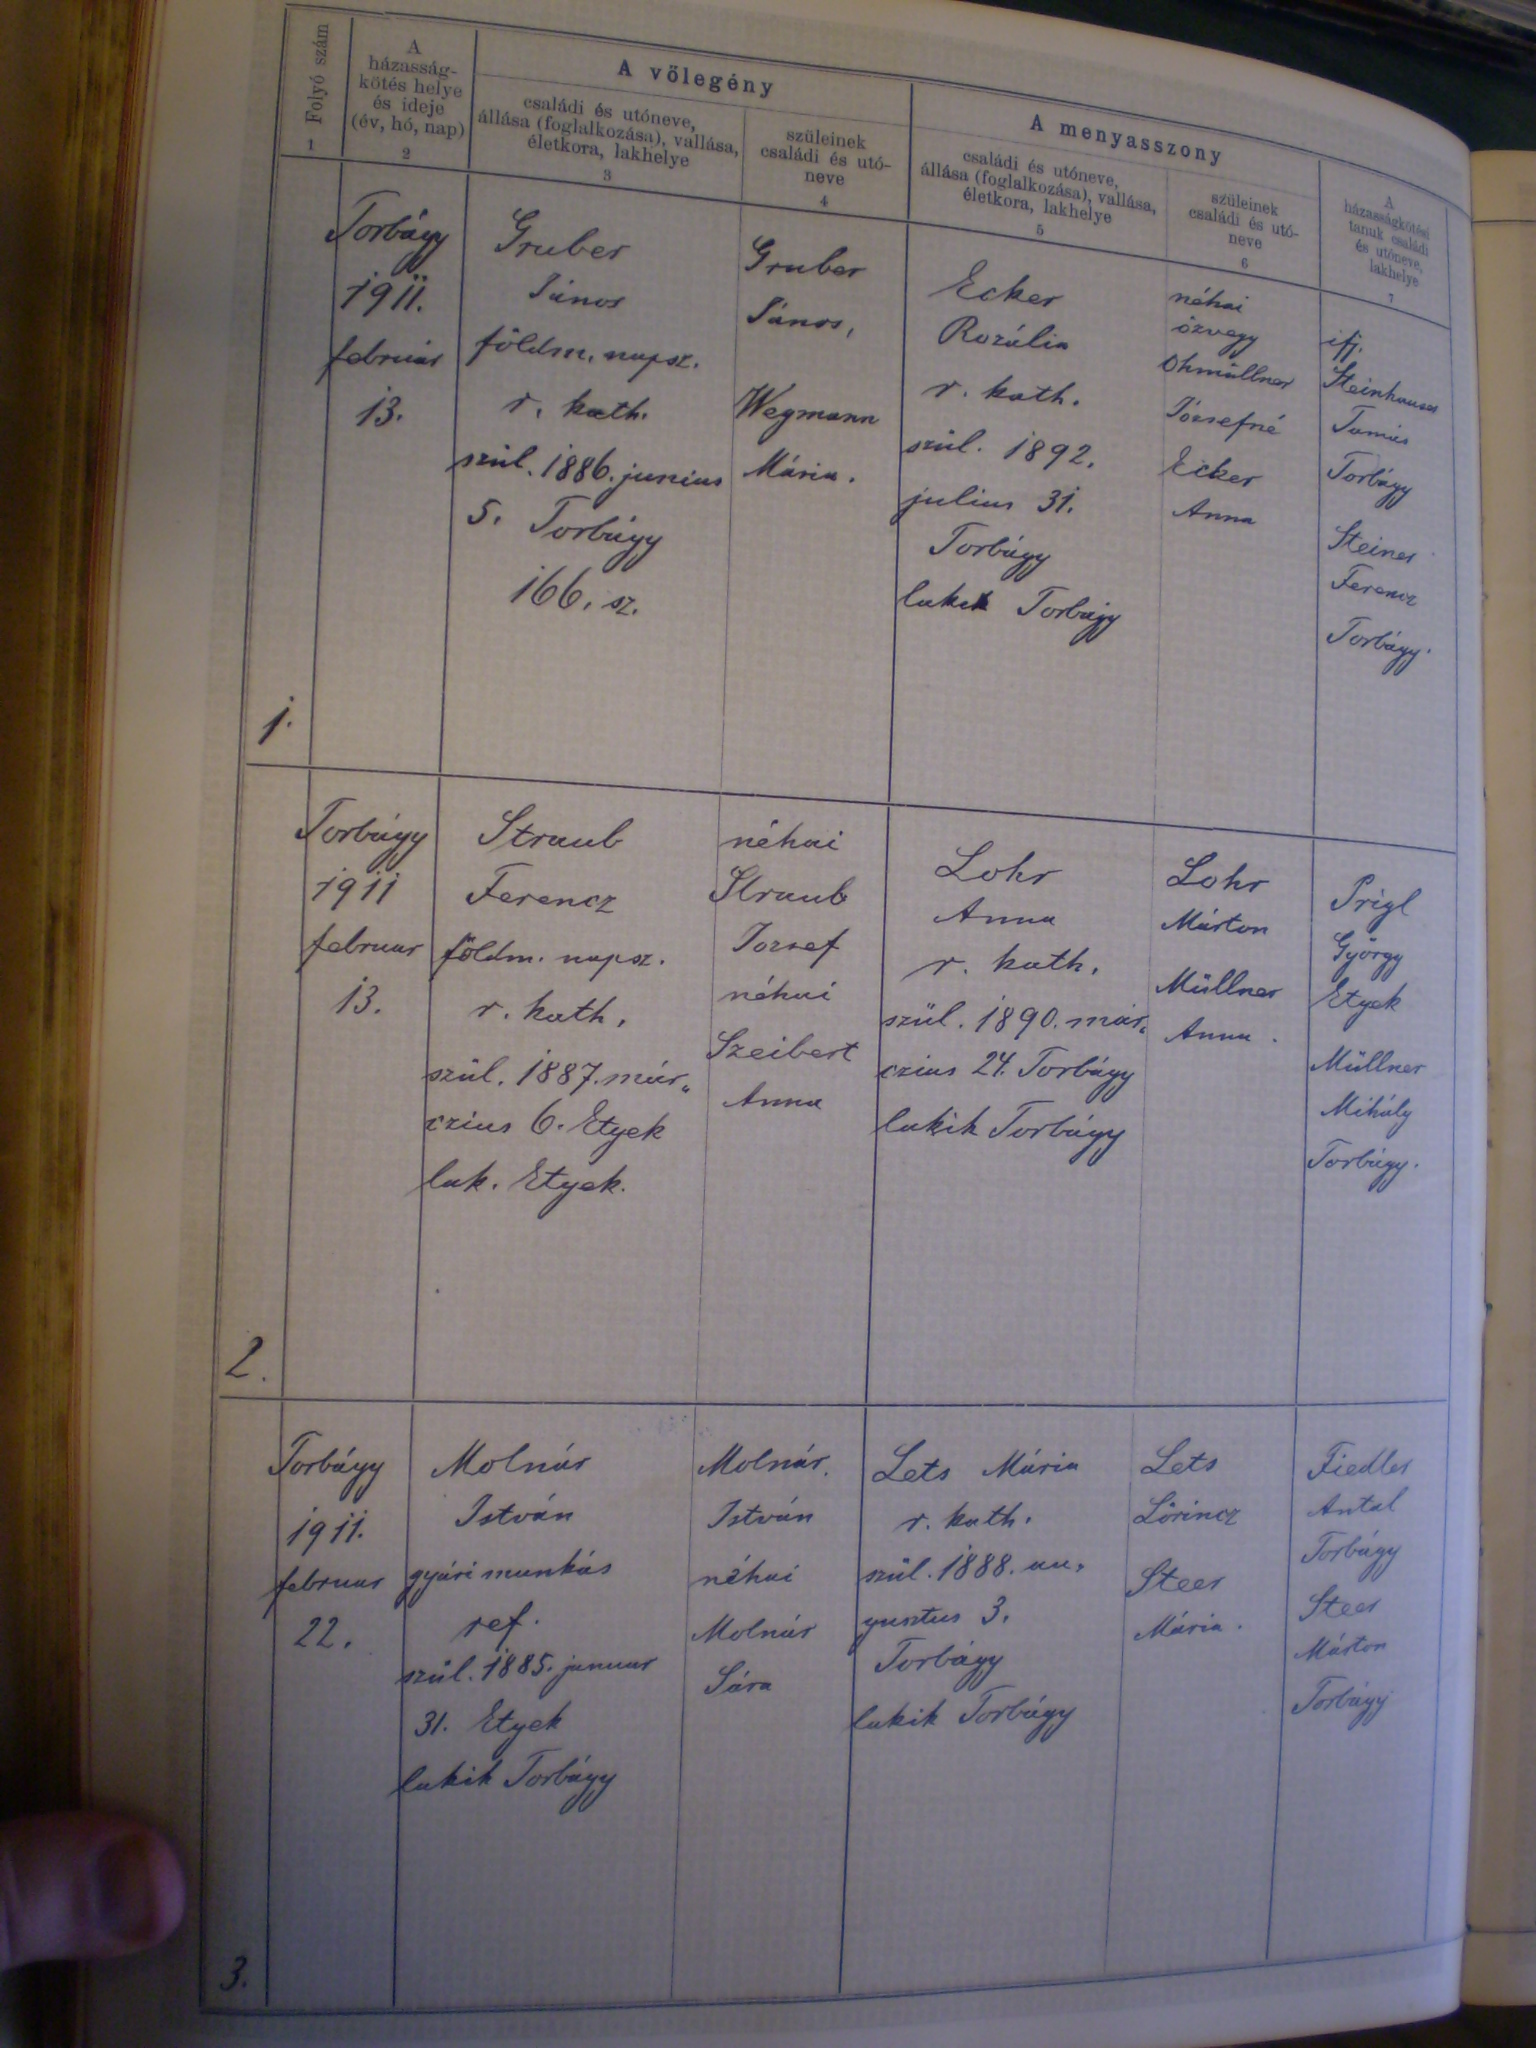 Folyó szám
1
A
házasság-
kötés helye
és ideje
(év, hó, nap)
2
A vőlegény
családi és utóneve,
állása (foglalkozása), vallása,
életkora, lakhelye
3
szüleinek
családi és utó-
neve
4
A menyasszony
családi és utóneve,
állása (foglalkozása), vallása,
életkora, lakhelye
5
szüleinek
családi és utó-
neve
6
A
házasságkötési
tanuk családi
és utóneve,
lakhelye
7
1.
Torbágy
1911.
február
13.
Gruber
János
földm. napsz.
r. kath.
szül. 1886. junius
5. Torbágy
166. sz.
Gruber
János,
Wegmann
Mária.
Ecker
Rozália
r. kath.
szül. 1892.
julius 31.
Torbágy
lakik Torbágy
néhai
özvegy
Ohmüllner
Józsefné
Ecker
Anna
ifj.
Steinhauser
Tamás
Torbágy
Steiner
Ferencz
Torbágy.
2.
Torbágy
1911
februar
13.
Straub
Ferencz
földm. napsz.
r. kath.
szül. 1887. már„
czius 6. Etyek
lak. Etyek.
néhai
Straub
Jozsef
néhai
Szeibert
Anna
Lohr
Anna
r. kath.
szül. 1890. már„
czius 24. Torbágy
lakik Torbágy
Lohr
Márton
Müllner
Anna.
Prigl
György
Etyek
Müllner
Mihály
Torbágy.
3.
Torbágy
1911.
februar
22.
Molnár
István
gyári munkás
ref.
szül. 1885. januar
31. Etyek
lakik Torbágy
Molnár
István
néhai
Molnár
Sára
Lets Mária
r. kath.
szül. 1888. au„
gusztus 3.
Torbágy
lakik Torbágy
Lets
Lőrincz
Steer
Mária.
Fiedler
Antal
Torbágy
Steer
Márton
Torbágy